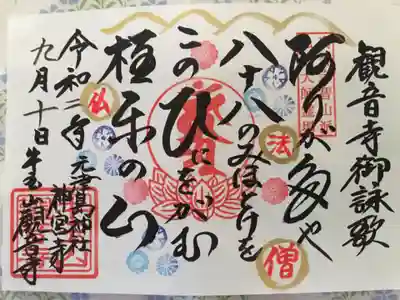 観音寺御詠歌
阿りが多や
八十八のみほとけを
このひにをがむ
極楽の山
仏
法
僧
令和二年
九月十日
元津島神社
神宮寺
牛玉山觀音寺